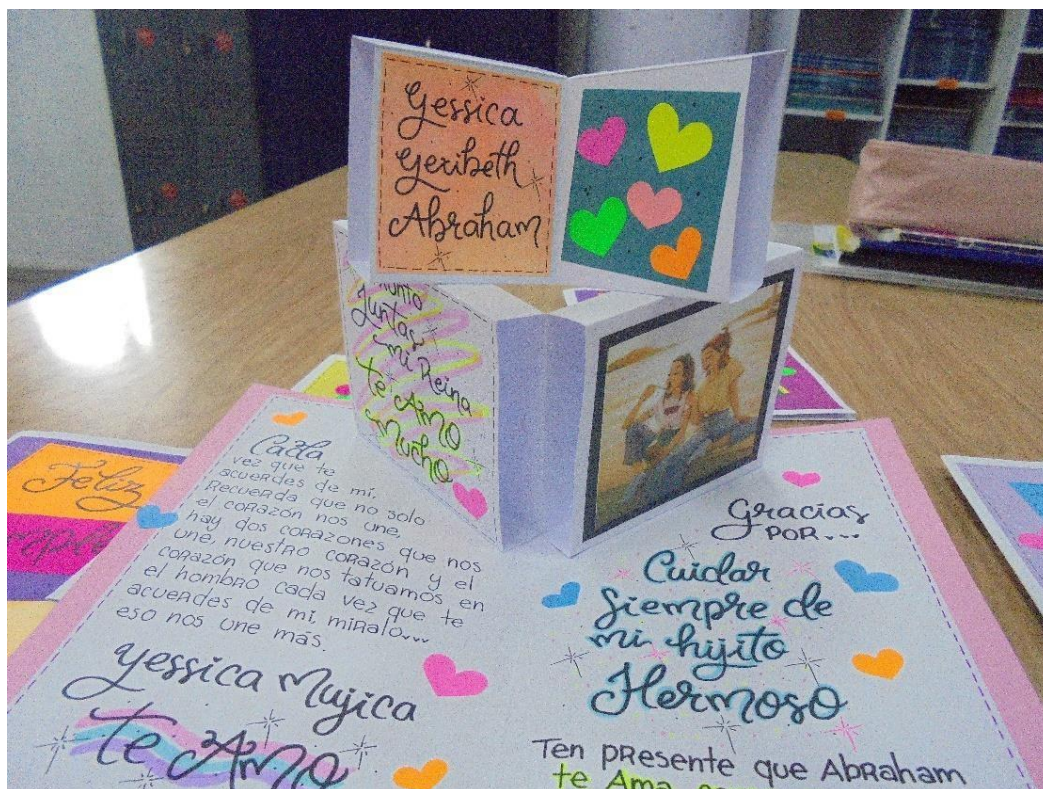 Yessica
Yeribeth
Abraham
Juntas
mi Reina
te AMO
Mucho
Cada
vez que te
acuerdes de mí,
Recuerda que no solo
el corazón nos une,
hay dos corazones que nos
une, nuestro corazón y el
corazón que nos tatuamos en
el hombro cada vez que te
acuerdes de mí, miralo...
eso nos une más.
Yessica Mujica
te AMO
Gracias
POR...
Cuidar
Siempre de
mi hijito
Hermoso
Ten presente que Abraham
te Ama
Feliz